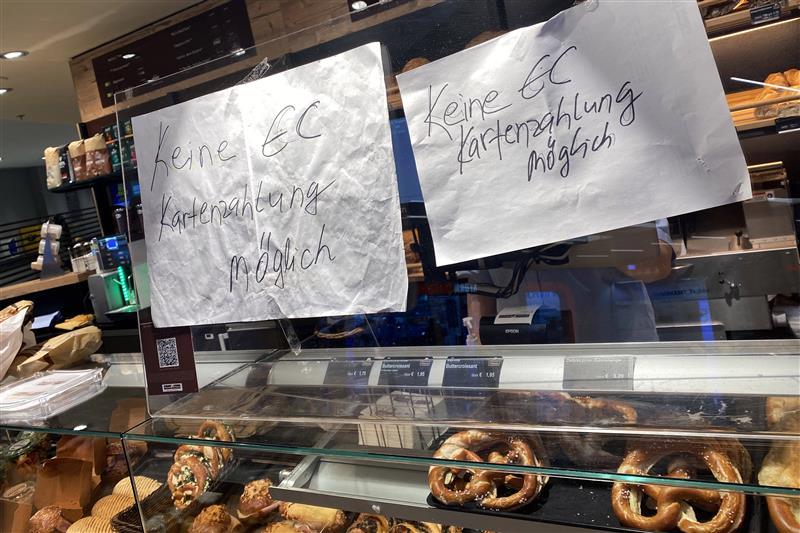 Keine EC
Kartenzahlung
möglich
Keine EC
Kartenzahlung
möglich
EPSON
Buttercroissant
€ 1,95
Buttercroissant
€ 1,95